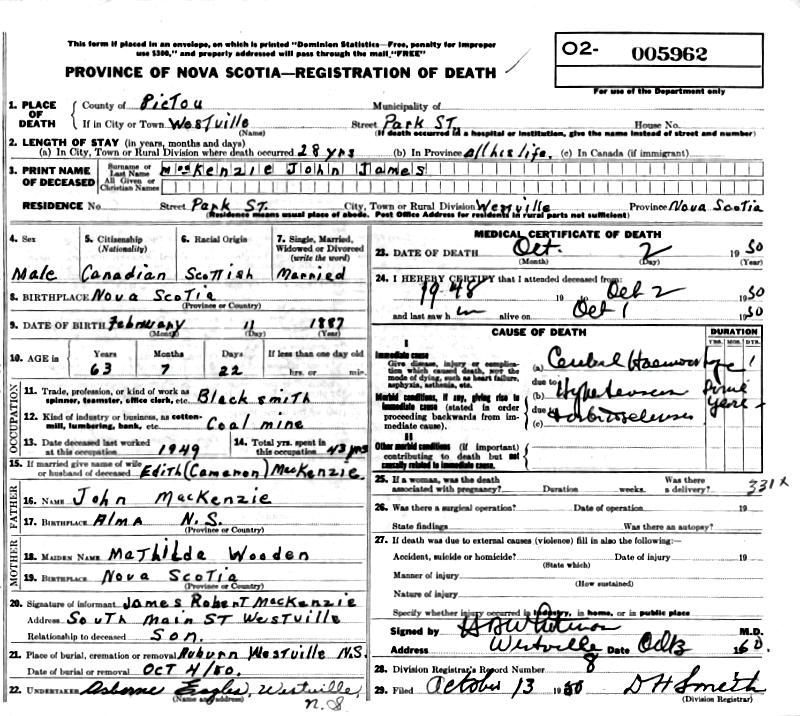 This form if placed in an envelope, on which is printed "Dominion Statistics—Free, penalty for improper
use $300," and properly addressed will pass through the mail "FREE"
PROVINCE OF NOVA SCOTIA—REGISTRATION OF DEATH
O2- 005962
For use of the Department only
1. PLACE OF DEATH
County of Pictou Municipality of
If in City or Town Westville Street Park ST. House No.
(Name) (If death occurred in a hospital or institution, give the name instead of street and number)
2. LENGTH OF STAY (in years, months and days)
(a) In City, Town or Rural Division where death occurred 28 yrs (b) In Province all his life. (c) In Canada (if immigrant)
3. PRINT NAME OF DECEASED
Surname or Last Name MacKenzie John James
All Given or Christian Names
RESIDENCE No. Street Park ST. City, Town or Rural Division Westville Province Nova Scotia
(Residence means usual place of abode. Post Office Address for residents in rural parts not sufficient)
4. Sex 5. Citizenship (Nationality) 6. Racial Origin 7. Single, Married, Widowed or Divorced (write the word)
Male Canadian Scottish Married
8. BIRTHPLACE Nova Scotia
(Province or Country)
9. DATE OF BIRTH February 11 1887
(Month) (Day) (Year)
10. AGE in Years Months Days If less than one day old
63 7 22 hrs. or min.
OCCUPATION
11. Trade, profession, or kind of work as spinner, teamster, office clerk, etc. Blacksmith
12. Kind of industry or business, as cotton-mill, lumbering, bank, etc. Coal mine
13. Date deceased last worked at this occupation 1949
14. Total yrs. spent in this occupation 43 yrs
15. If married give name of wife or husband of deceased Edith (Cameron) MacKenzie.
FATHER
16. NAME John MacKenzie
17. BIRTHPLACE Alma N.S.
(Province or Country)
MOTHER
18. MAIDEN NAME Mathilda Wooden
19. BIRTHPLACE Nova Scotia
(Province or Country)
20. Signature of informant James Robert MacKenzie
Address South Main ST Westville
Relationship to deceased Son.
21. Place of burial, cremation or removal Auburn Westville N.S.
Date of burial or removal OCT 4/50.
22. UNDERTAKER Osborne Eagles, Westville, N.S
(Name and address)
MEDICAL CERTIFICATE OF DEATH
23. DATE OF DEATH Oct. 2 1950
(Month) (Day) (Year)
24. I HEREBY CERTIFY that I attended deceased from:
1948 19 to Oct 2 1950
and last saw h im alive on Oct 1 1950
CAUSE OF DEATH
DURATION
YRS. MOS. DYS.
I
Immediate cause
Give disease, injury or complication which caused death, not the mode of dying, such as heart failure, asphyxia, asthenia, etc.
(a) Cerebral Haemorrhage 1
due to
Morbid conditions, if any, giving rise to immediate cause (stated in order proceeding backwards from immediate cause).
(b) Hypertension
due to
(c)
II
Other morbid conditions (if important) contributing to death but not causally related to immediate cause.
25. If a woman, was the death associated with pregnancy? Duration weeks. Was there a delivery?
331X
26. Was there a surgical operation? Date of operation 19
State findings Was there an autopsy?
27. If death was due to external causes (violence) fill in also the following:—
Accident, suicide or homicide? Date of injury 19
(State which)
Manner of injury
(How sustained)
Nature of injury
Specify whether injury occurred in industry, in home, or in public place
Signed by M.D.
Address Westville Date
28. Division Registrar's Record Number 8
29. Filed October 13 1950 D H Smith
(Division Registrar)